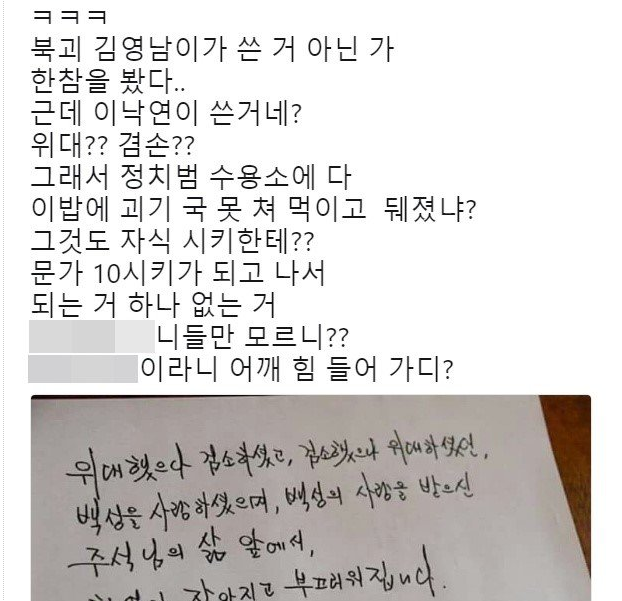 ㅋㅋㅋ
북괴 김영남이가 쓴 거 아닌 가
한참을 봤다..
근데 이낙연이 쓴거네?
위대?? 겸손??
그래서 정치범 수용소에 다
이밥에 괴기 국 못 쳐 먹이고 뒈졌냐?
그것도 자식 시키한테??
문가 10시키가 되고 나서
되는 거 하나 없는 거
니들만 모르니??
이라니 어깨 힘 들어 가디?
위대했으나 검소하셨고, 검소했으나 위대하셨던,
백성을 사랑하셨으며, 백성의 사랑을 받으신
주석님의 삶 앞에서,
작아지고 부끄러워집니다.